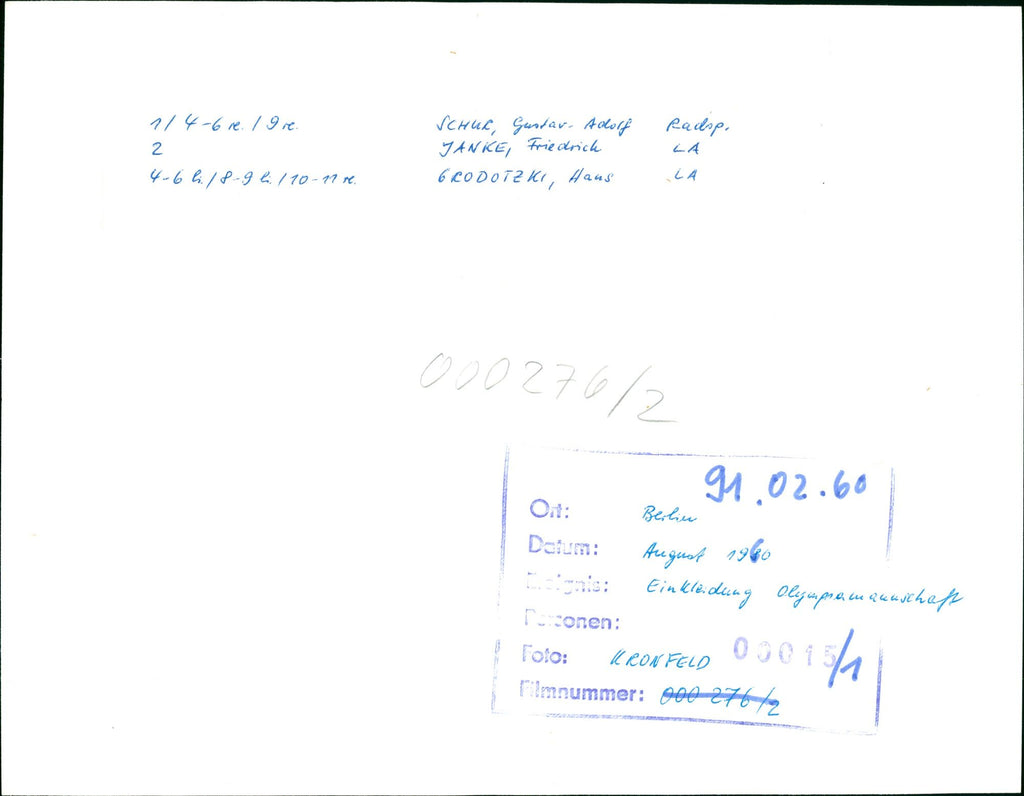 1 / 4-6 re. / 9 re. SCHUR, Gustav-Adolf Radsp.
2 JANKE, Friedrich LA
4-6 li. / 8-9 li. / 10-11 re. GRODOTZKI, Hans LA
000276/2
91.02.60
Ort: Berlin
Datum: August 1960
Ereignis: Einkleidung Olympiamannschaft
Personen:
Foto: KRONFELD 00015/1
Filmnummer: 000 276/2